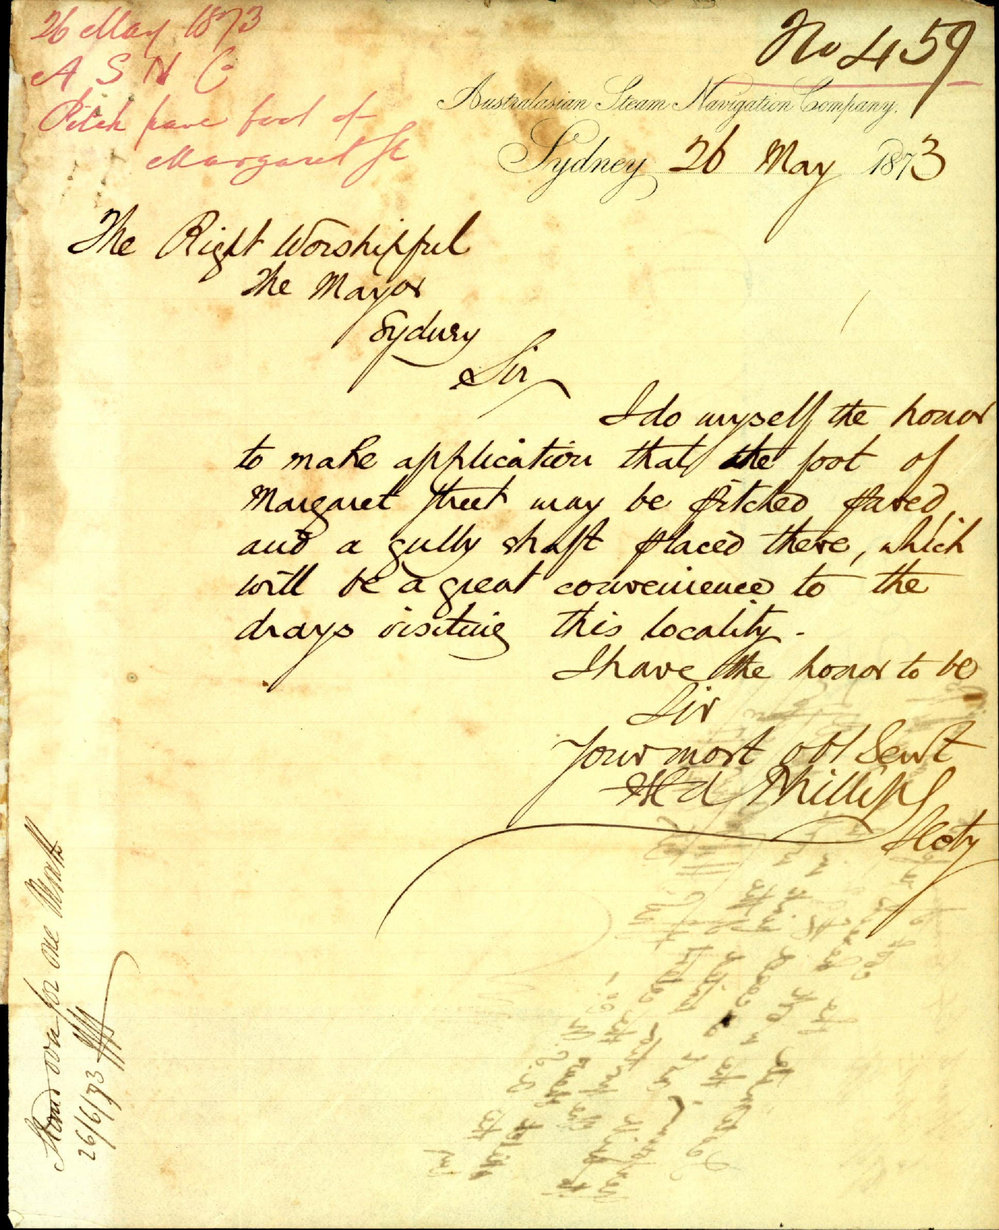 26 May 1873
A S N Co
Pitch pave foot of
Margaret St
No 459
Australasian Steam Navigation Company.
Sydney 26 May 1873
The Right Worshipful
The Mayor
Sydney
Sir
I do myself the honor
to make application that the foot of
Margaret Street may be pitched paved,
and a gully shaft placed there, which
will be a great convenience to the
drays visiting this locality.
I have the honor to be
Sir
Your most obt Servt
Phillips
Secty
Stand over for one Month
26/6/73